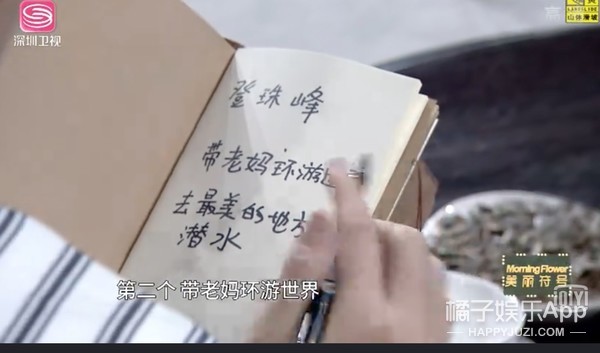 深圳卫视
登珠峰
带老妈环游
去最美的地方
潜水
第二个 带老妈环游世界
Morning Flower
美丽符号
橘子娱乐App
HAPPYJUZI.COM